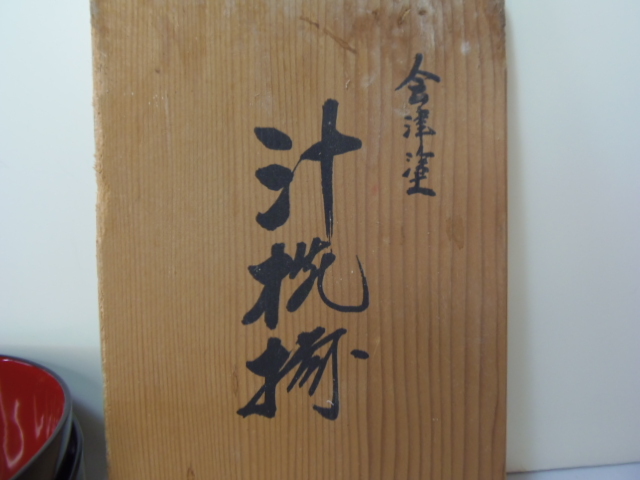 会津塗
汁椀揃